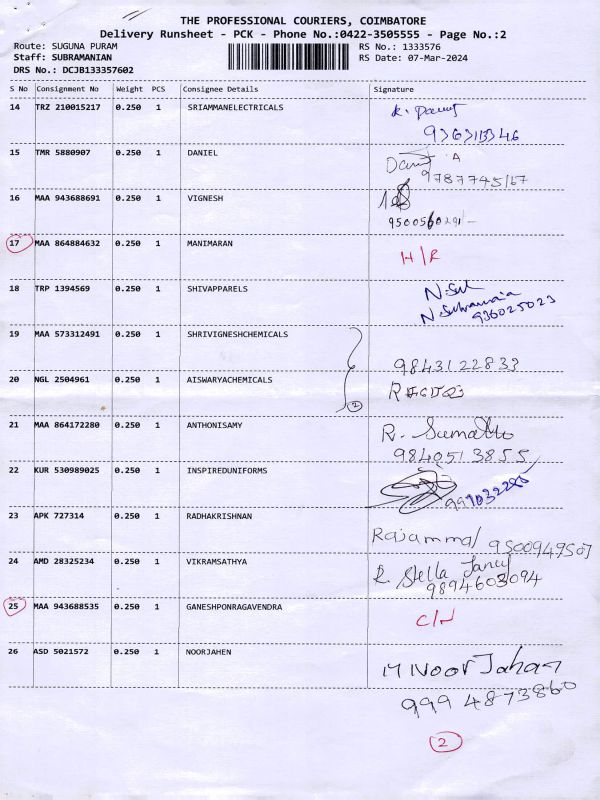 THE PROFESSIONAL COURIERS, COIMBATORE
Delivery Runsheet - PCK - Phone No.:0422-3505555 - Page No.:2
Route: SUGUNA PURAM
RS No.: 1333576
Staff: SUBRAMANIAN
RS Date: 07-Mar-2024
DRS No.: DCJB133357602
S No Consignment No Weight PCS Consignee Details Signature
14 TRZ 210015217 0.250 1 SRIAMMANELECTRICALS
15 TMR 5880907 0.250 1 DANIEL
9787745167
16 MAA 943688691 0.250 1 VIGNESH
17 MAA 864884632 0.250 1 MANIMARAN H/R
18 TRP 1394569 0.250 1 SHIVAPPARELS
936025023
19 MAA 573312491 0.250 1 SHRIVIGNESHCHEMICALS
9843122833
20 NGL 2504961 0.250 1 AISWARYACHEMICALS
2
21 MAA 864172280 0.250 1 ANTHONISAMY R.
9840513855
22 KUR 530989025 0.250 1 INSPIREDUNIFORMS
23 APK 727314 0.250 1 RADHAKRISHNAN
Rajammal 9500949507
24 AMD 28325234 0.250 1 VIKRAMSATHYA R. Stella Jancy
9894603094
25 MAA 943688535 0.250 1 GANESHPONRAGAVENDRA
26 ASD 5021572 0.250 1 NOORJAHEN M Noor Jahan
999 4873860
2